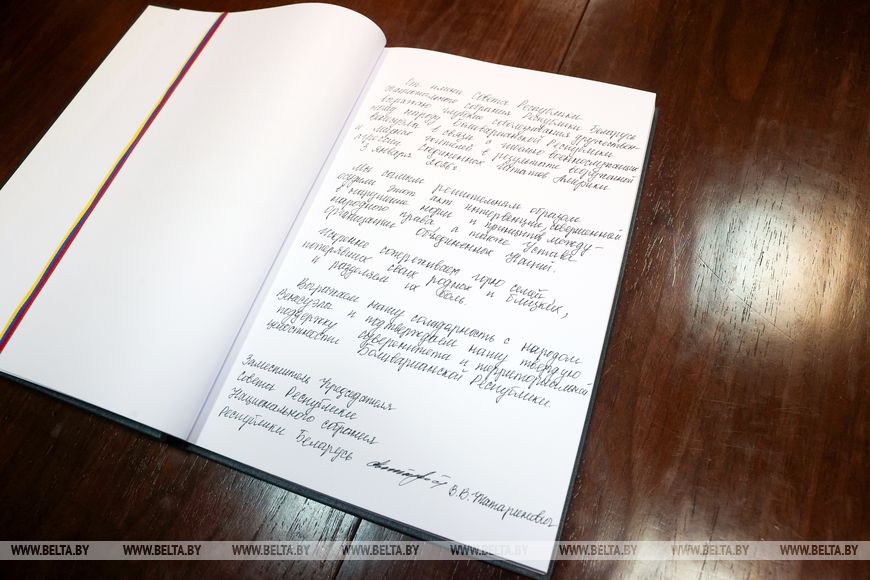 От имени Совета Республики
Национального собрания Республики Беларусь
выражаю глубокие соболезнования дружествен-
ному народу Боливарианской Республики
Венесуэла в связи с гибелью военнослужащих
и мирных жителей в результате вооруженной
агрессии Соединенных Штатов Америки
3 января
Мы самым решительным образом
осуждаем этот акт интервенции, совершенной
в нарушение норм и принципов между-
народного права а также Устава
Организации Объединенных Наций.
Искренне сопереживаем горю семей
потерявших своих родных и близких,
и разделяем их боль.
Выражаем нашу солидарность с народом
Венесуэлы и подтверждаем нашу твердую
поддержку суверенитета и территориальной
целостности Боливарианской Республики.
Заместитель Председателя
Совета Республики
Национального собрания
Республики Беларусь
В.В. Жатаринович
WWW.BELTA.BY WWW.BELTA.BY WWW.BELTA.BY WWW.BELTA.BY WWW.BELTA.BY WWW.BELTA.BY WWW.BELTA.BY WWW.BELTA.BY